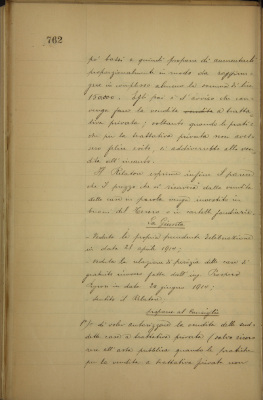 762
più bassi e quindi propone di aumentarli
proporzionalmente in modo da raggiun-
gere in complesso almeno la somma di lire
150000. Egli poi è d'avviso che con-
venga fare la vendita a tratta-
tiva privata; soltanto quando le prati-
che per la trattativa privata non aves-
sero felice esito, si addiverrebbe alla ven-
dita all'incanto.
Il Relatore esprime infine il parere
che il prezzo che si ricaverà dalla vendita
delle case in parola venga investito in
buoni del Tesoro o in cartelle fondiarie.
La Giunta
- Veduta la propria precedente deliberazione
in data 21 aprile 1900;
- veduta la relazione di perizia delle case di
fatta dall'ing.
in data 20 giugno 1900;
- Sentito il Relatore
propone al Consiglio
1º/ di voler autorizzare la vendita delle sud-
dette case a trattativa privata, salvo ricor-
rere all'asta pubblica quando le pratiche
per la vendita a trattativa privata non